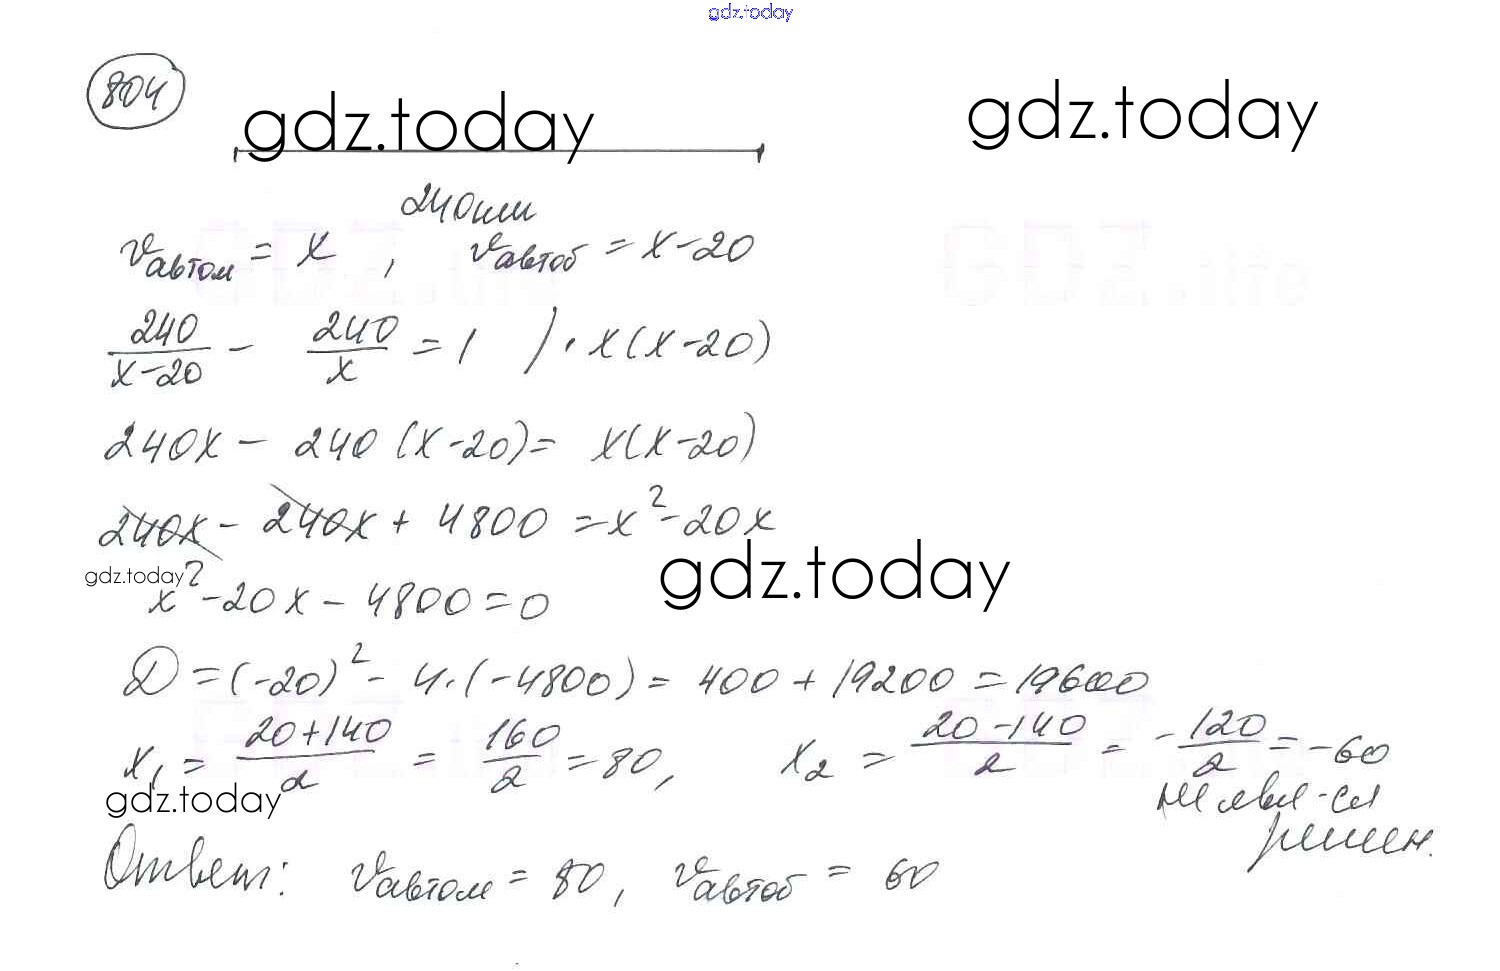 gdz.today
804
gdz.today gdz.today
240км
vавтом = x , vавтоб = x-20
240/(x-20) - 240/x = 1 ) · x(x-20)
240x - 240(x-20) = x(x-20)
240x - 240x + 4800 = x² - 20x
gdz.today
gdz.today
x² - 20x - 4800 = 0
D = (-20)² - 4·(-4800) = 400 + 19200 = 19600
x₁ = (20+140)/2 = 160/2 = 80, x₂ = (20-140)/2 = -120/2 = -60
не явл-ся
решен.
gdz.today
Ответ: vавтом = 80, vавтоб = 60